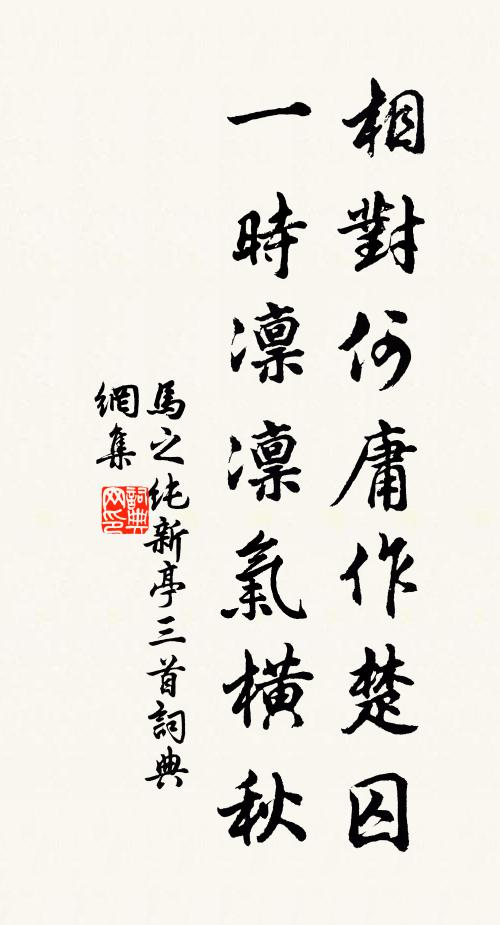 相對何庸作楚囚
一時凛凛氣橫秋
馬之纯新亭三首詞典
網集
詞典
网印